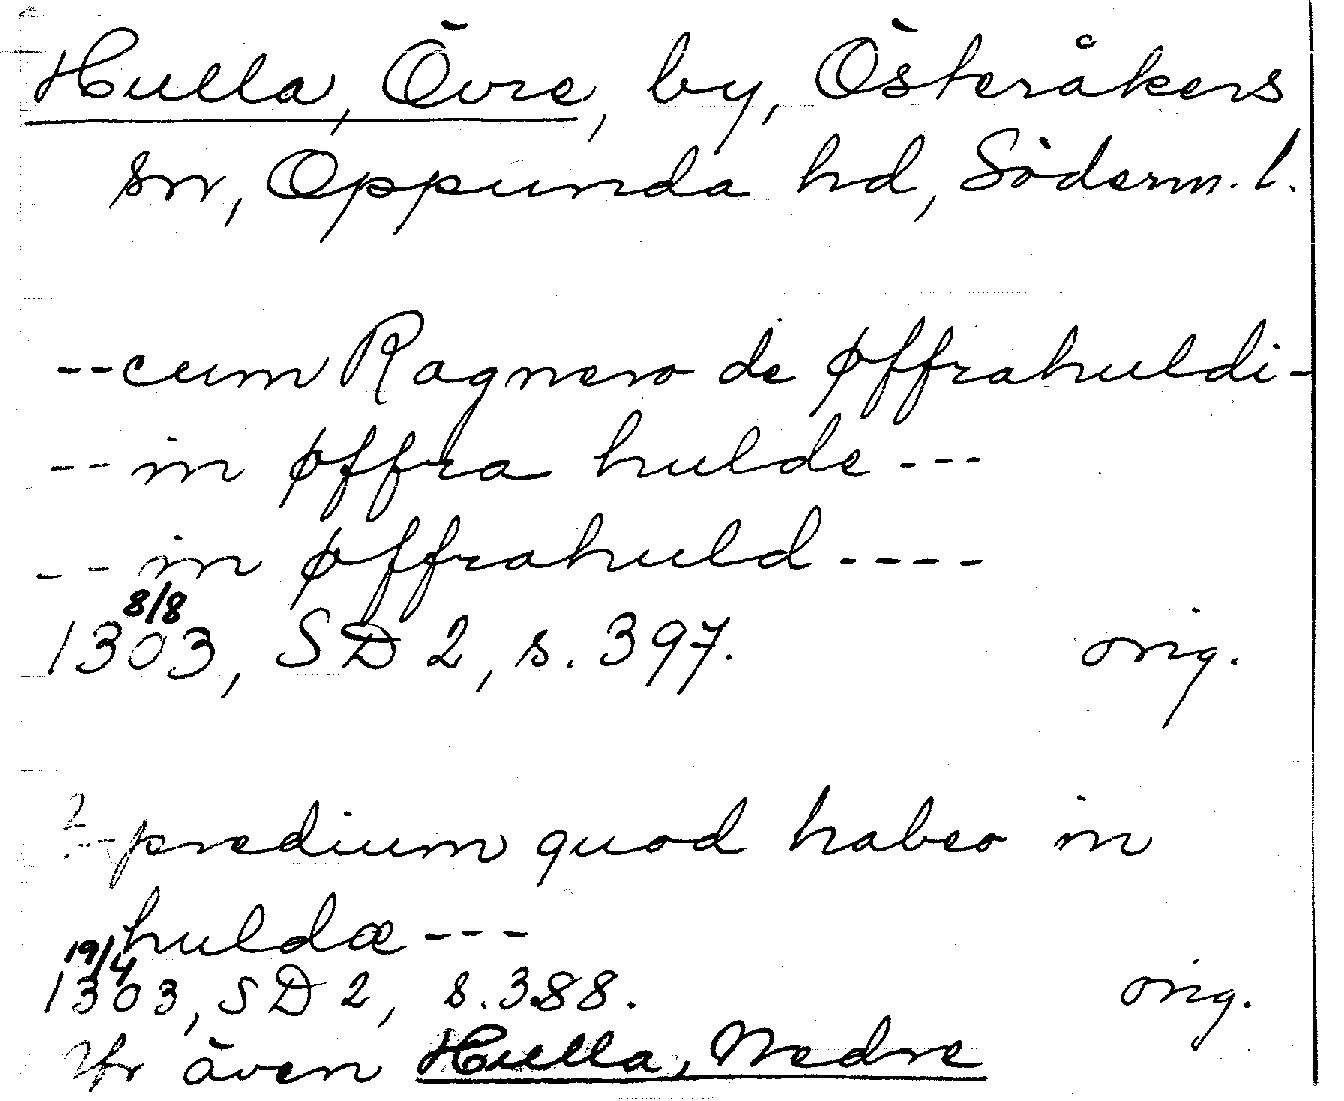 Hulla, Övre, by, Österåkers
sn, Oppunda hd, Söderm. l.
--cum Ragnero de øffrahuldi-
--in øffra hulde---
--in øffrahuld----
8/8
1303, SD 2, s. 397. orig.
?--predium quod habeo in
huldæ---
19/4
1303, SD 2, s. 388. orig.
Jfr även Hulla, Nedre